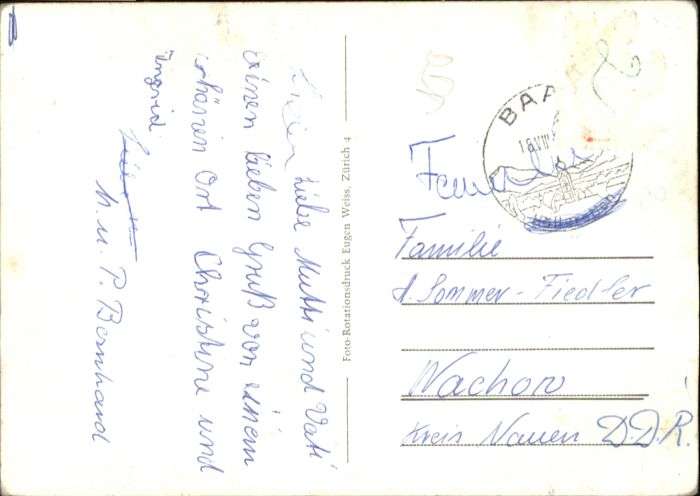 Liebe Mutti und Vati
einen lieben Gruß von einem
schönen Ort Christine und
Ingrid
M. u. P. Bernhard
Foto-Rotationsdruck Eugen Weiss, Zürich 4
BAA
16.VIII
Familie
Sommer-Fiedler
Wachow
Kreis Nauen D.D.R.